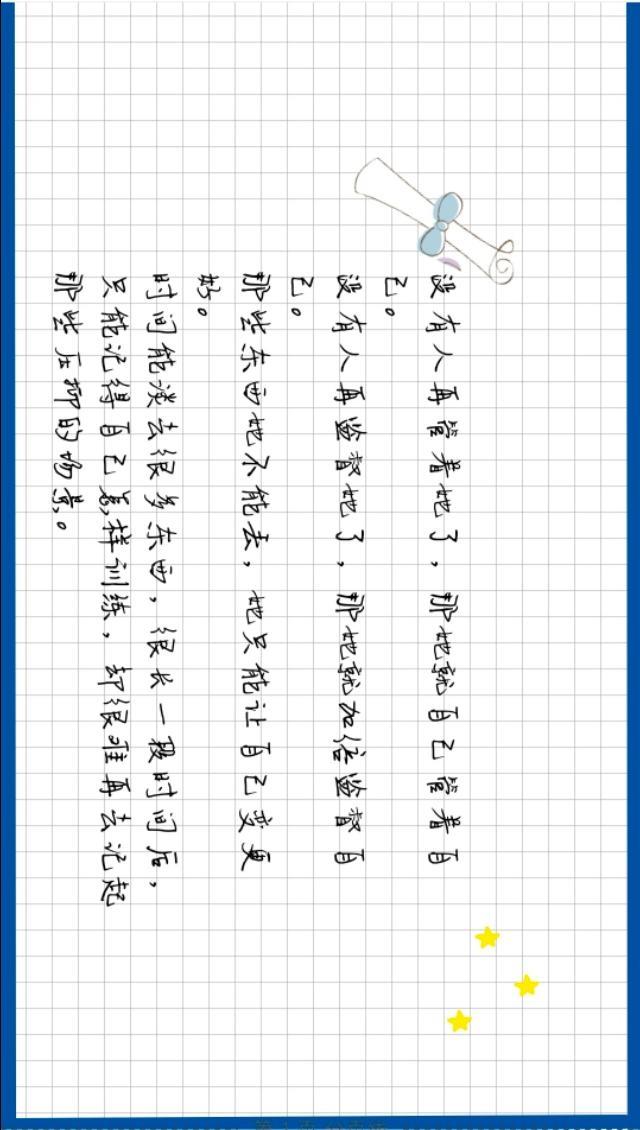 没有人再管着她了，那她就自己管着自
己。
没有人再监督她了，那她就加倍监督自
己。
那些东西她不能丢，她只能让自己变更
好。
时间能淡去很多东西，很长一段时间后，
只能记得自己怎样训练，却很难再去记起
那些压抑的场景。